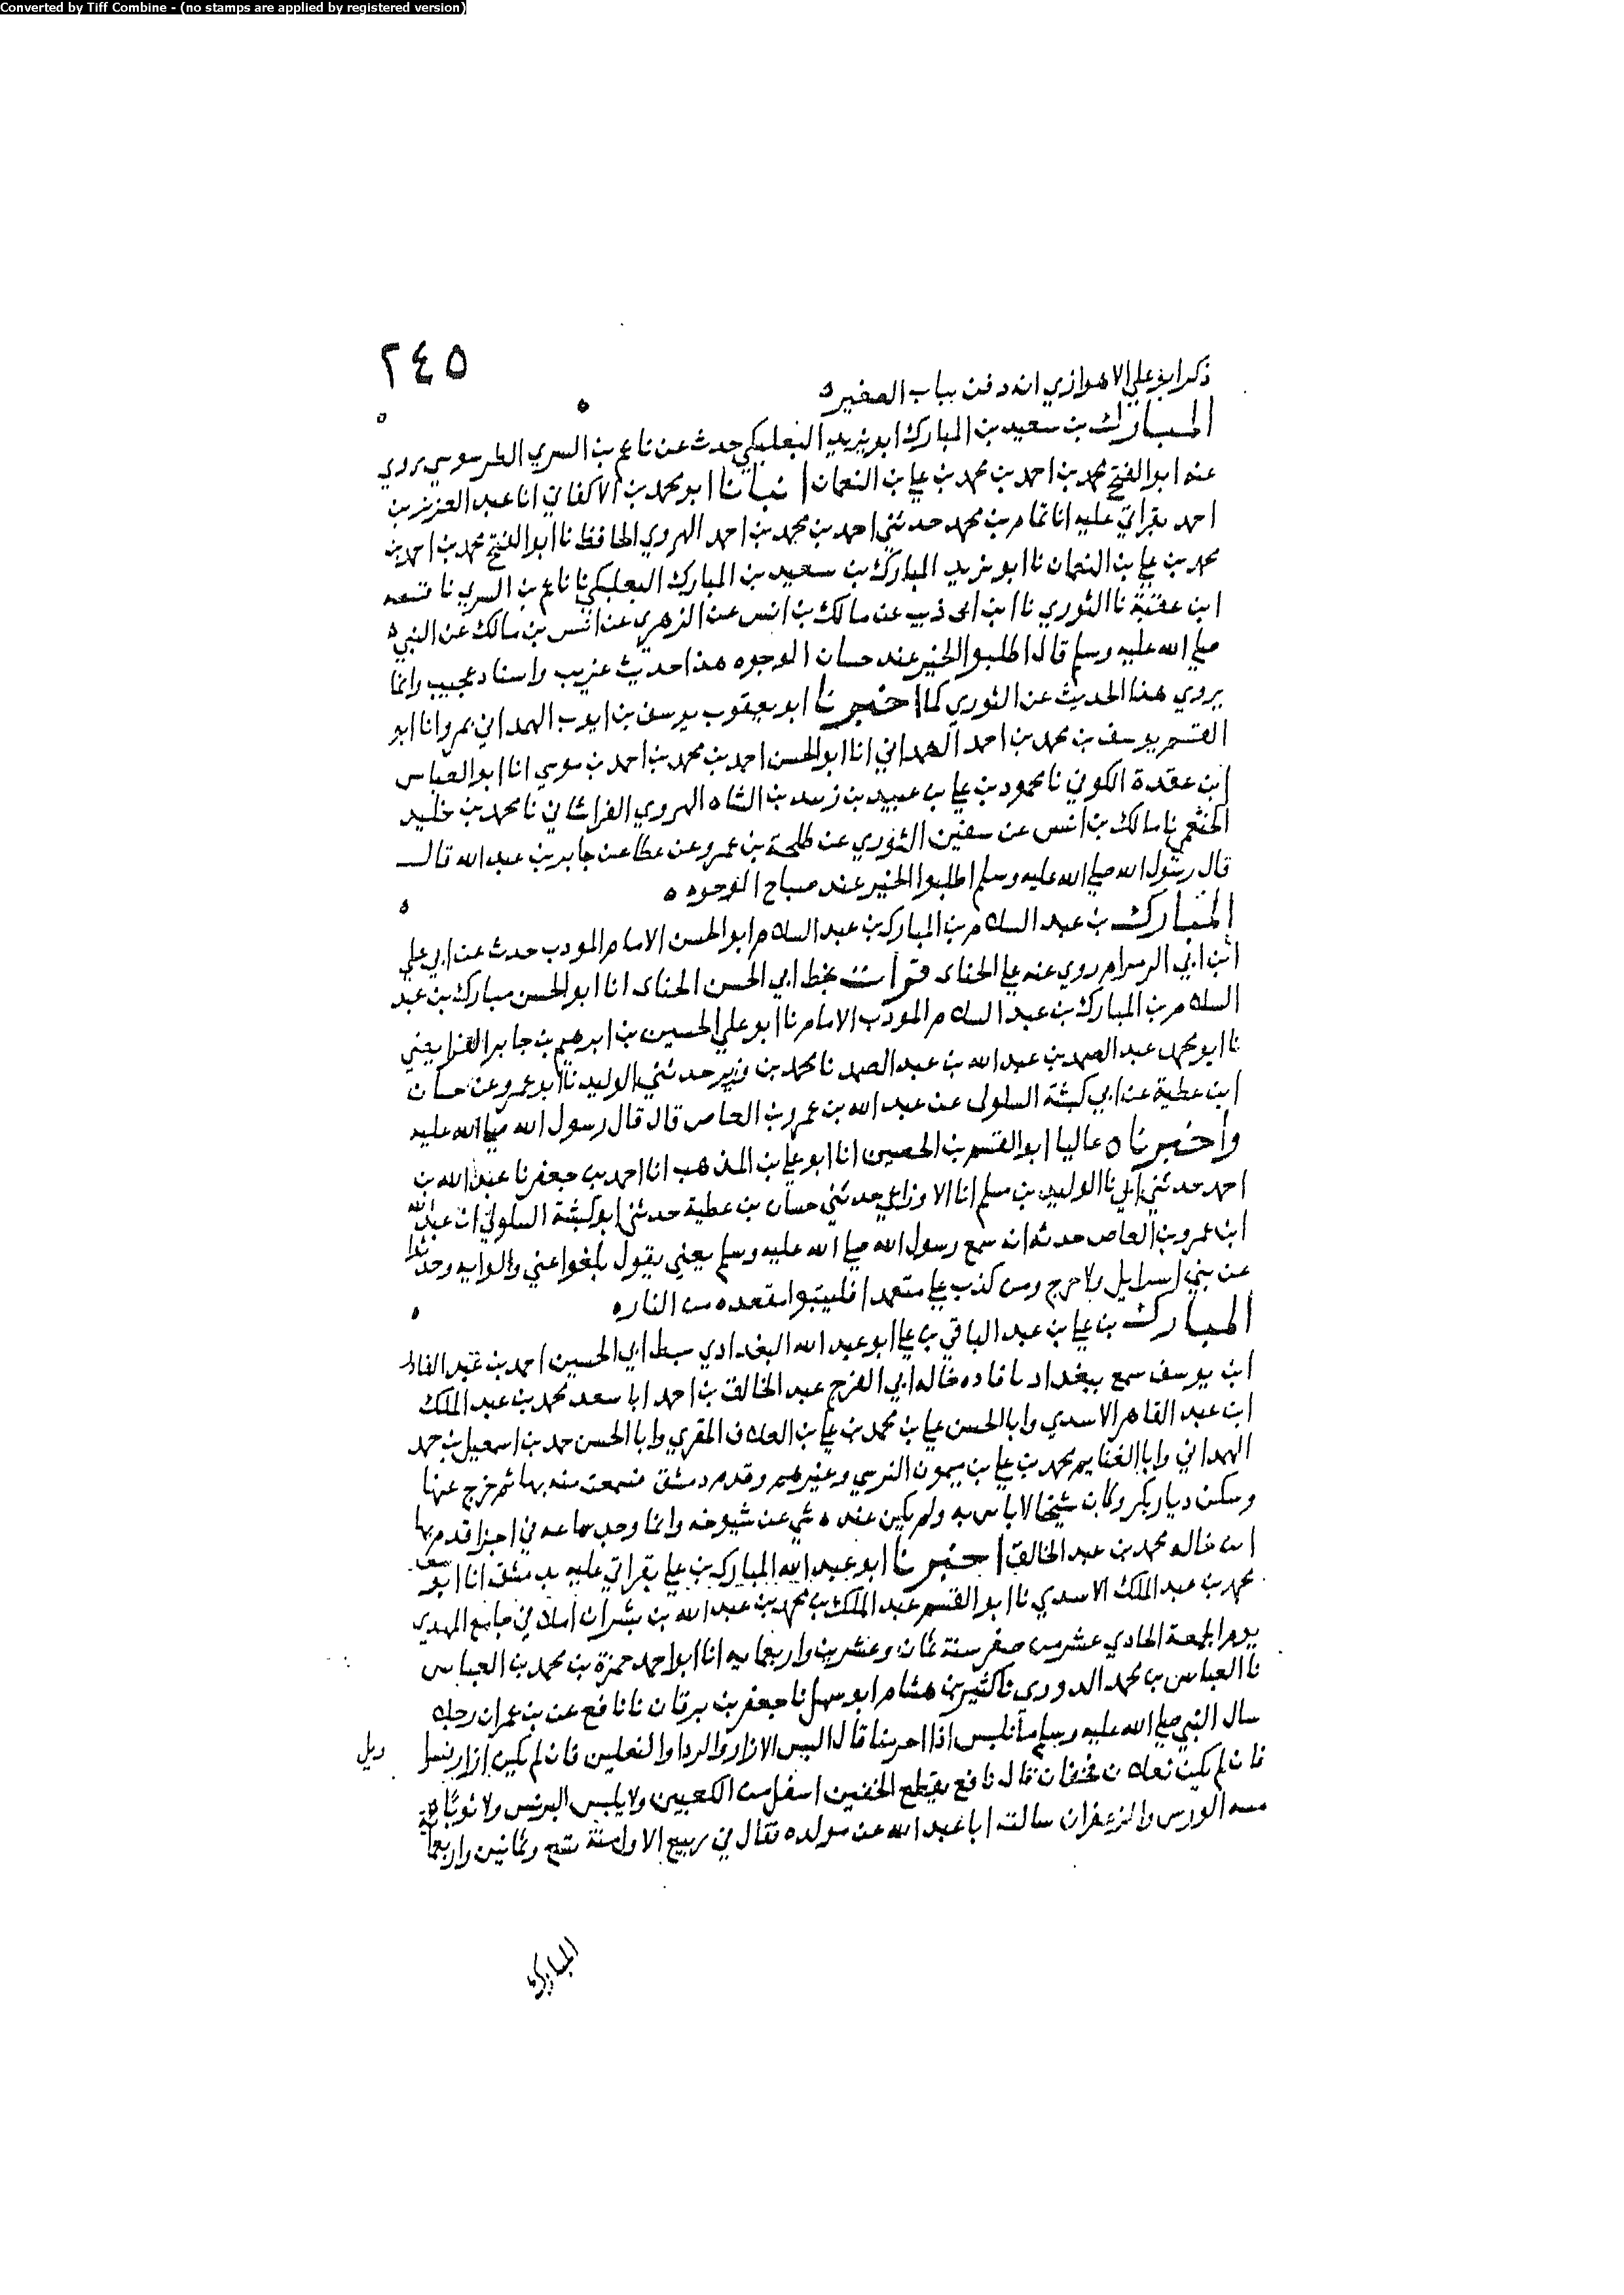 Converted by Tiff Combine - (no stamps are applied by registered version)
٢٤٥
ذكر ابو علي الاهوازي انه دفن بباب الصغير
المبارك بن سعيد بن المبارك ابو يزيد البعلبكي حدث عن ناعم بن السري الطرسوسي روي
عنه ابو الفتح محمد بن احمد بن محمد بن علي بن النعمان انبانا ابو محمد بن الاكفاني انا عبد العزيز بن
احمد بقراتي عليه انا تمام بن محمد حدثني احمد بن محمد بن احمد الهروي الحافظ نا ابو الفتح محمد بن احمد بن
محمد بن علي بن النعمان نا ابو يزيد المبارك بن سعيد بن المبارك البعلبكي نا ناعم بن السري نا
ابن عقبة نا الثوري نا ابن ابي ذيب عن مالك بن انس عن الزهري عن انس بن مالك عن النبي
صلي الله عليه وسلم قال اطلبوا الخير عند حسان الوجوه هذا حديث غريب واسناد عجيب وانما
يروي هذا الحديث عن الثوري كما اخبرنا ابو يعقوب يوسف بن ايوب الهمداني بمرو انا ابو
القسم يوسف بن محمد بن احمد الهمداني انا ابو الحسن احمد بن محمد بن احمد بن موسي انا ابو العباس
ابن عقدة الكوفي نا محمود بن علي بن عبيد بن الشاه الهروي نا محمد بن خليد
الخثعمي نا مالك بن انس عن سفين الثوري عن طلحة بن عمرو عن عطا عن جابر بن عبد الله قال
قال رسول الله صلي الله عليه وسلم اطلبوا الخير عند صباح الوجوه
المبارك بن عبد السلام بن المبارك بن عبد السلام ابو الحسن الامام المودب حدث عن ابي علي
ابن ابي الزمزام روي عنه علي الحناى قرات بخط ابي الحسن الحناى انا ابو الحسن مبارك بن عبد
السلام بن المبارك بن عبد السلام المودب الامام نا ابو علي الحسين بن ابرهيم بن جابر الفرايضي
نا ابو محمد عبد الصمد بن عبد الله بن عبد الصمد نا محمد بن وزير حدثني الوليد نا ابو عمرو عن حسان
ابن عطية عن ابي كبشة السلولى عن عبد الله بن عمرو بن العاص قال قال رسول الله صلي الله عليه
واخبرناه عاليا ابو القسم بن الحصين انا ابو علي بن المذهب انا احمد بن جعفر نا عبد الله بن
احمد حدثني ابي نا الوليد بن مسلم انا الاوزاعي حدثني حسان بن عطية حدثني ابو كبشة السلولي ان عبد الله
ابن عمرو بن العاص حدثه انه سمع رسول الله صلي الله عليه وسلم يعني يقول بلغوا عني ولو ايه وحدثوا
عن بني اسرايل ولا حرج ومن كذب علي متعمدا فليتبوا مقعده من النار
المبارك بن علي بن عبد الباقي بن علي ابو عبد الله البغدادي سبط ابي الحسين احمد بن عبد القادر
ابن يوسف سمع ببغداد بافاده خاله ابي الفرج عبد الخالق بن احمد ابا سعد محمد بن عبد الملك
ابن عبد القاهر الاسدي وابا الحسن علي بن محمد بن علي بن العلاف المقري وابا الحسن حمد بن اسمعيل بن حمد
الهمداني وابا الغنايم محمد بن علي بن ميمون النرسي وغيرهم وقدم دمشق فسمعت منه بها ثم خرج عنها
وسكن ديار بكر وكان شيخا لا باس به ولم يكن عنده شي عن شيوخه وانما وجد سماعه في اجزا قدم بها
ابن خاله محمد بن عبد الخالق اخبرنا ابو عبد الله المبارك بن علي بقراتي عليه بدمشق انا ابو سعد
محمد بن عبد الملك الاسدي نا ابو القسم عبد الملك بن محمد بن عبد الله بن بشران املا في جامع المهدي
يوم الجمعة الحادي عشر من صفر سنة ثمان وعشرين واربعمايه انا ابو احمد حمزة بن محمد بن العباس
نا العباس بن محمد الدوري نا كثير بن هشام ابو سهل نا جعفر بن برقان نا نافع عن بن عمر ان رجلا
سال النبي صلي الله عليه وسلم ما نلبس اذا احرمنا قال البس الازار والردا والنعلين فان لم يكن ازار
فان لم يكن نعلان فخفان قال نافع يقطع الخفين اسفل من الكعبين ولا يلبس البرنس ولا ثوبا
مسه الورس والزعفران سالت ابا عبد الله عن مولده فقال في ربيع الاول سنة تسع وثمانين واربعماية
المبارك